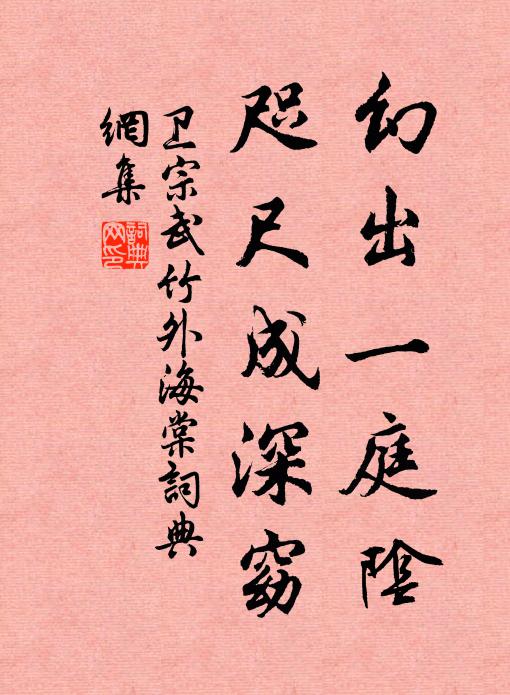 幻出一庭陰
咫尺成深窈
卫宗武竹外海棠詞典
網集
詞典
网印